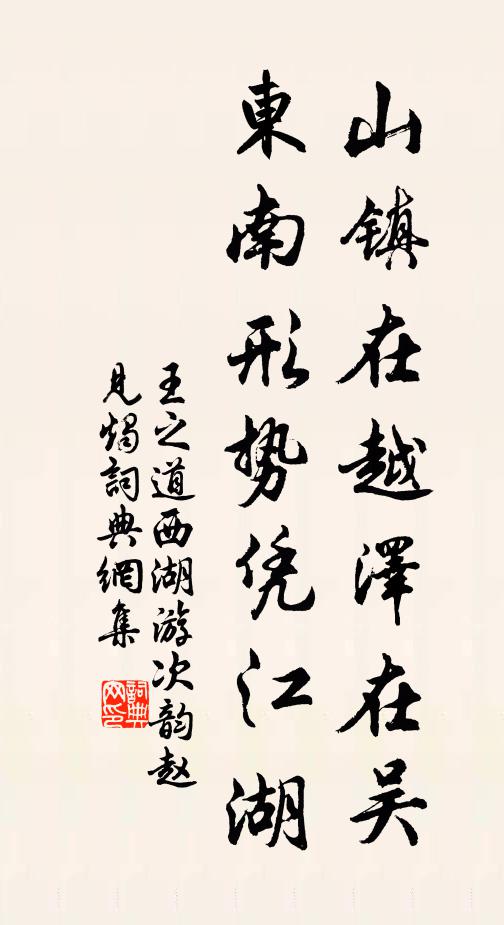 山镇在越澤在吴
東南形势凭江湖
王之道西湖游次韵赵
見燭詞典網集
詞典网印